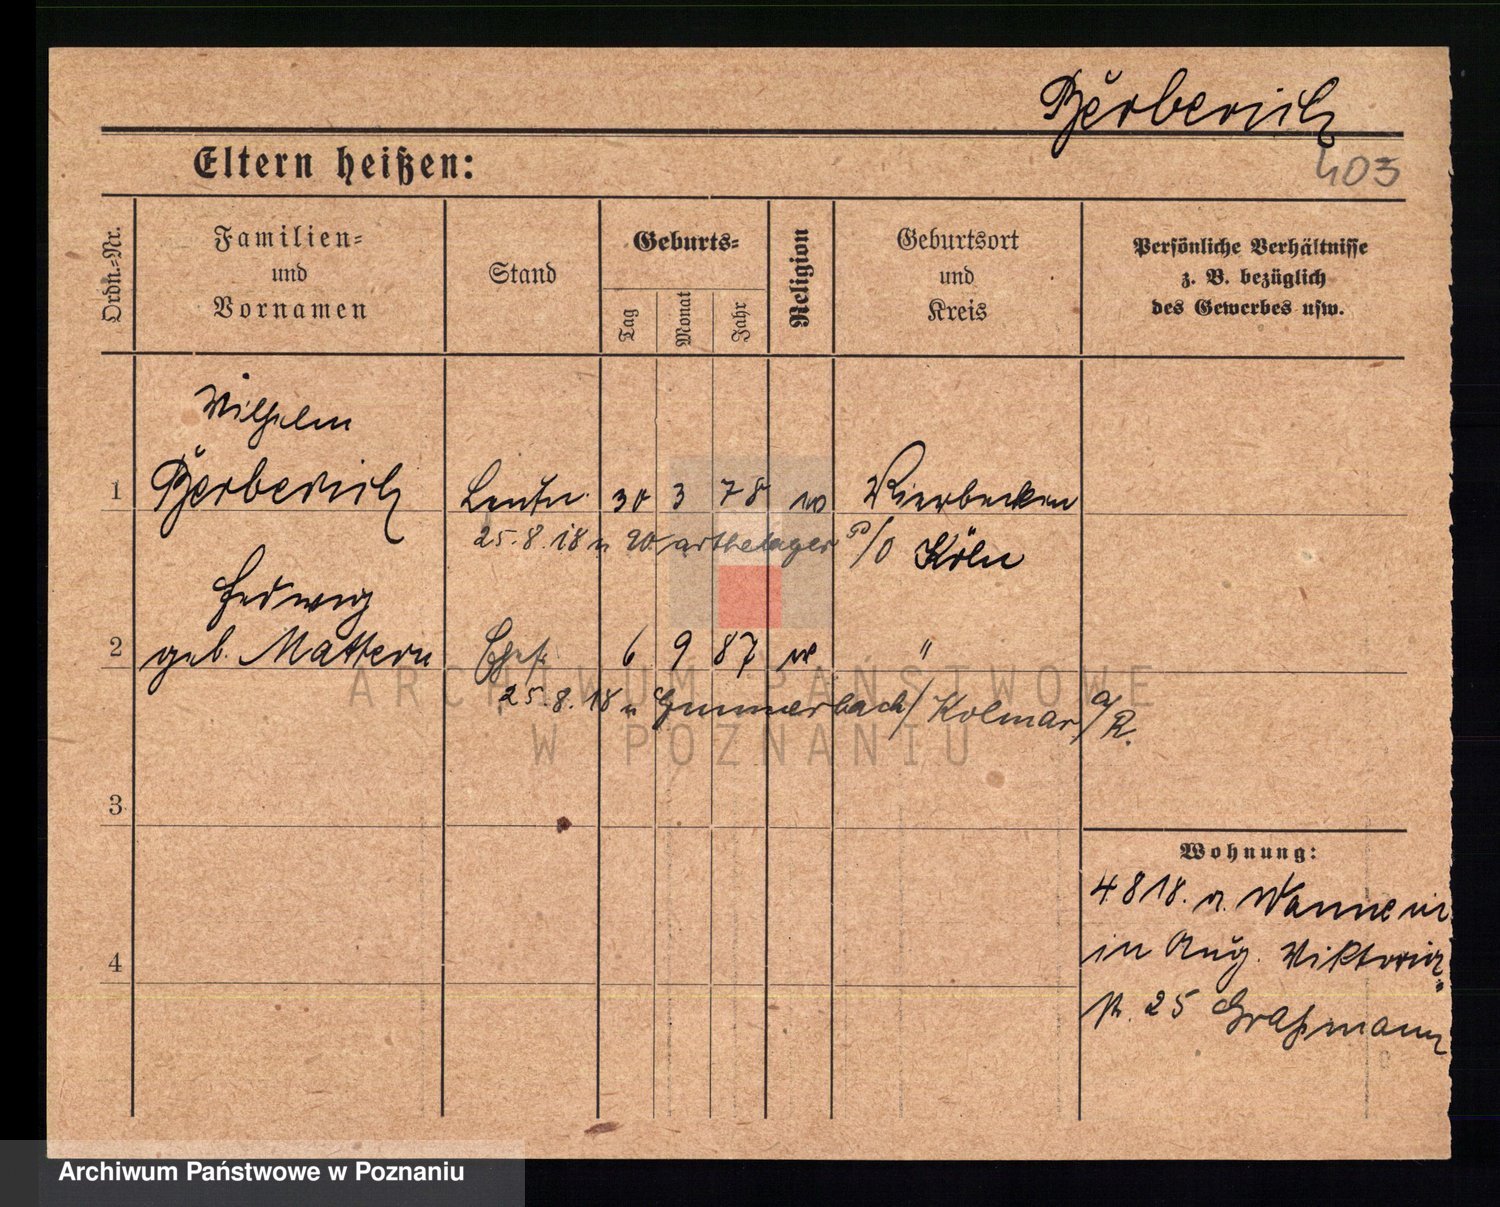 Berberich
403
Eltern heißen:
Ordn.-Nr.
Familien-
und
Vornamen
Stand
Geburts-
Tag
Monat
Jahr
Religion
Geburtsort
und
Kreis
Persönliche Verhältnisse
z. B. bezüglich
des Gewerbes usw.
Wilhelm
1 Berberich Leutn. 30 3 78 Bierbecken
25.8.18 n
P/O Köln
Hedwig
2 geb. Mattern Ehefr. 6 9 87 "
25.8.18 n Gummersbach/Kolmar a/R.
3
Wohnung:
4 8 18. v.
in Aug. Viktoria
4
str. 25 Graßmann
ARCHIWUM PAŃSTWOWE
W POZNANIU
Archiwum Państwowe w Poznaniu